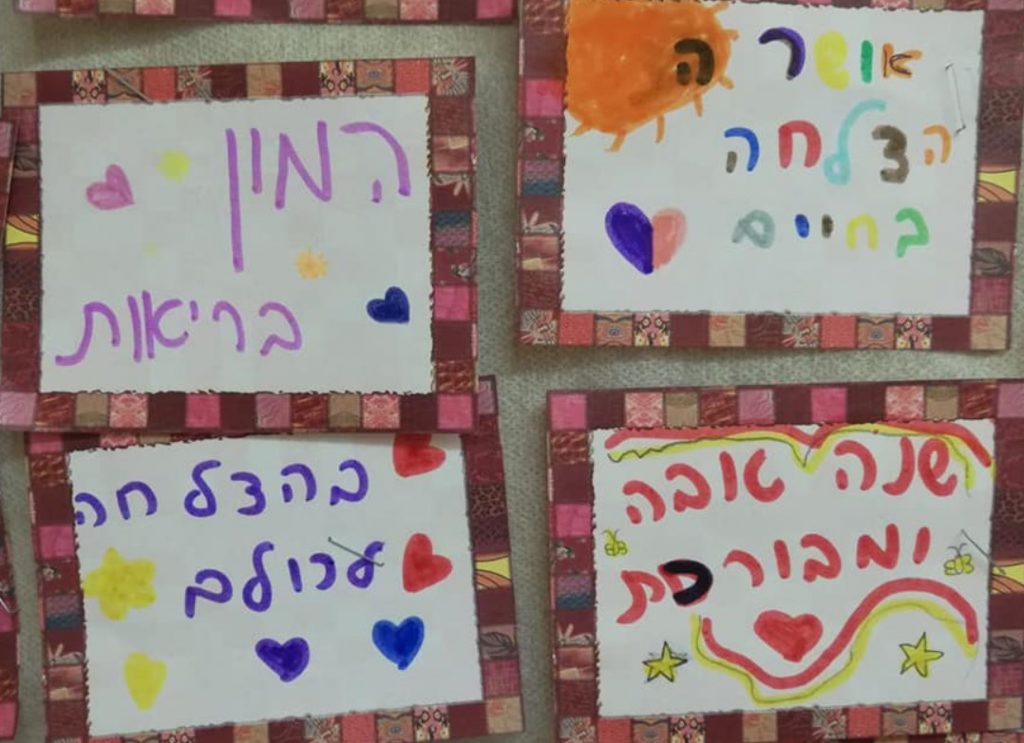 אושר ה
הצלחה
בחיים
המון
בריאות
שנה טובה
ומבורכת
בהצלחה
לכולם